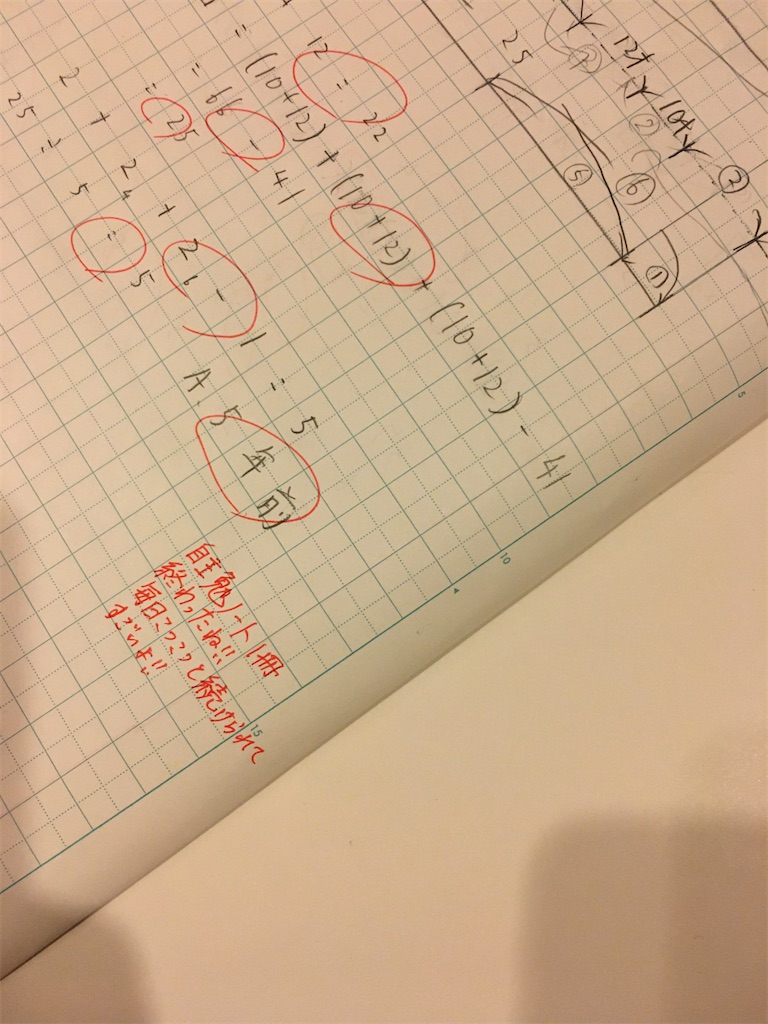 12 = 22
= (10+12) + (10+12) + (10+12) - 41
= 66 - 41
= 25
2 + 24 + 26 - 1 = 5
25 ÷ 5 = 5
A. 5年前
25
12+
10+
②
②
③
⑤
⑥
①
自主勉ノート1冊
終わったね!!
毎日コツコツと続けられて
すごいよ!!
5
10
15